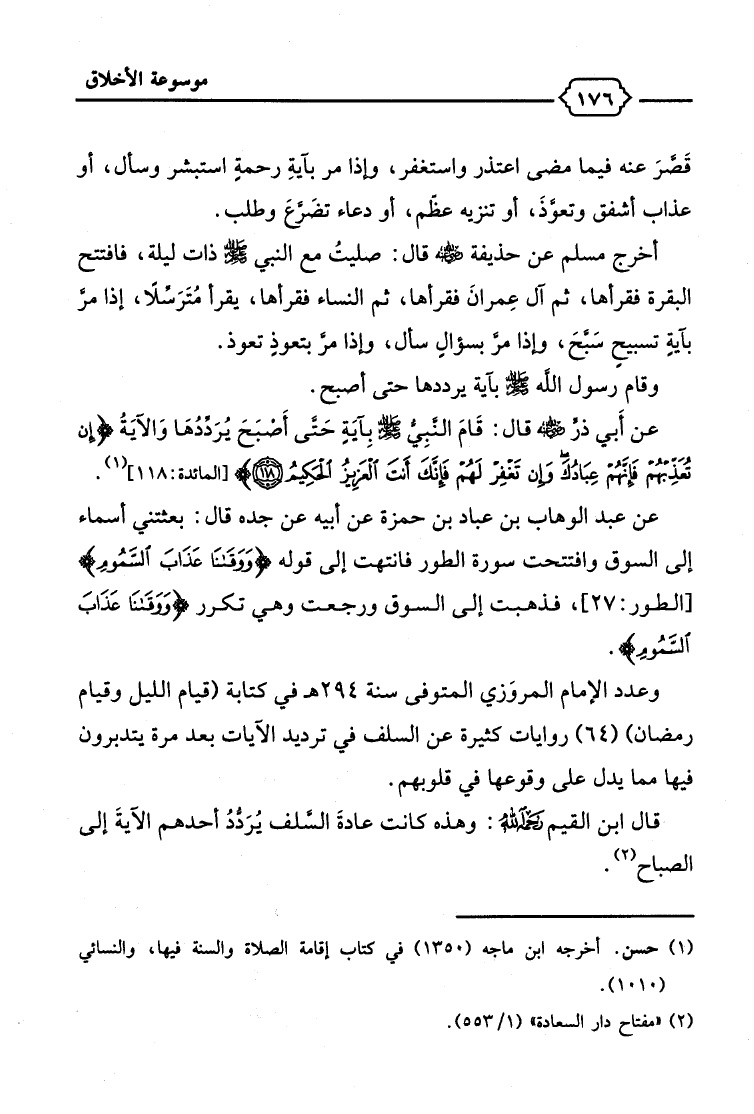 موسوعة الأخلاق
١٧٦
قَصَّرَ عنه فيما مضى اعتذر واستغفر، وإذا مر بآيةِ رحمةٍ استبشر وسأل، أو
عذاب أشفق وتعوَّذَ، أو تنزيه عظّم، أو دعاء تضَرَّعَ وطلب.
أخرج مسلم عن حذيفة رضي الله عنه قال: صليتُ مع النبي ﷺ ذات ليلة، فافتتح
البقرة فقرأها، ثم آل عِمرانَ فقرأها، ثم النساء فقرأها، يقرأ مُتَرَسِّلًا، إذا مرَّ
بآيةٍ تسبيحٍ سَبَّحَ، وإذا مرَّ بسؤالٍ سأل، وإذا مرَّ بتعوذٍ تعوذ.
وقام رسول اللَّه ﷺ بآية يرددها حتى أصبح.
عن أَبي ذرٍّ رضي الله عنه قال: قَامَ النَّبِيُّ ﷺ بِآيَةٍ حَتَّى أَصْبَحَ يُرَدِّدُهَا وَالآيَةُ ﴿إِن
تُعَذِّبْهُمْ فَإِنَّهُمْ عِبَادُكَ وَإِن تَغْفِرْ لَهُمْ فَإِنَّكَ أَنتَ ٱلْعَزِيزُ ٱلْحَكِيمُ ١١٨﴾ [المائدة: ١١٨](١).
عن عبد الوهاب بن عباد بن حمزة عن أبيه عن جده قال: بعثتني أسماء
إلى السوق وافتتحت سورة الطور فانتهت إلى قوله ﴿وَوَقَىٰنَا عَذَابَ ٱلسَّمُومِ﴾
[الطور: ٢٧]، فذهبت إلى السوق ورجعت وهي تكرر ﴿وَوَقَىٰنَا عَذَابَ
ٱلسَّمُومِ﴾.
وعدد الإمام المروَزي المتوفى سنة ٢٩٤هـ في كتابة (قيام الليل وقيام
رمضان) (٦٤) روايات كثيرة عن السلف في ترديد الآيات بعد مرة يتدبرون
فيها مما يدل على وقوعها في قلوبهم.
قال ابن القيم رحمه الله: وهذه كانت عادةَ السَّلف يُرَدِّدُ أحدهم الآيةَ إلى
الصباح(٢).
(١) حسن. أخرجه ابن ماجه (١٣٥٠) في كتاب إقامة الصلاة والسنة فيها، والنسائي
(١٠١٠).
(٢) «مفتاح دار السعادة» (١/ ٥٥٣).